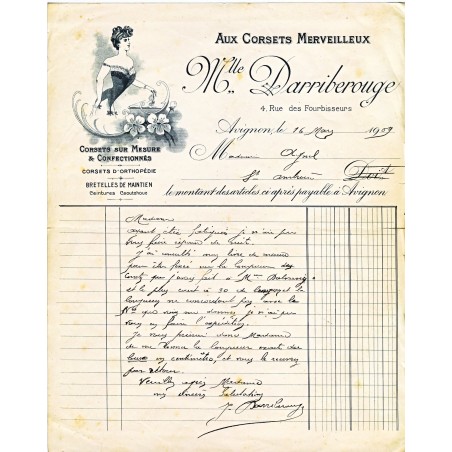 AUX CORSETS MERVEILLEUX
Mlle Darriberouge
4, Rue des Fourbisseurs
Avignon, le 26 Mars 1909
CORSETS SUR MESURE
& CONFECTIONNÉS
CORSETS D'ORTHOPÉDIE
BRETELLES DE MAINTIEN
Ceintures Caoutchouc
Madame
St Doit
le montant des articles ci après payable à Avignon
Madame
ayant été fatiguée je n'ai pas
pu vous faire réponse de suite.
J'ai consulté mon livre de mesure
pour être fixée sur la longueur des
corsets que j'avais fait à Mme
et le plus court a 30 de
longueur ne concordant pas avec le
No que vous me donnez je n'ai pas
vous en faire l'expédition.
Je vous prierai donc Madame
de me donner la longueur exacte du
en centimètres, et vous le recevrez
par retour.
Veuillez agréer Madame
mes sincères Salutations
J. Darriberouge